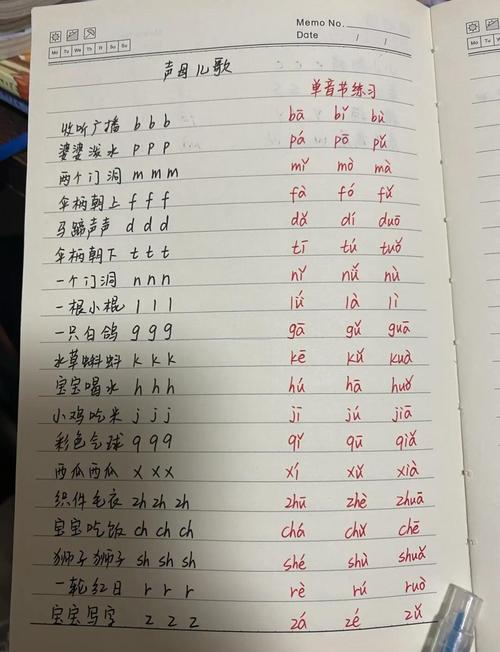 Memo No.
Mo Tu We Th Fr Sa Su
Date / /
声母儿歌
单音节练习
收听广播 b b b bā bǐ bù
婆婆泼水 p p p pá pō pǔ
两个门洞 m m m mǐ mò mà
伞柄朝上 f f f fà fó fǔ
马蹄声声 d d d dǎ dí duō
伞柄朝下 t t t tī tú tuǒ
一个门洞 n n n nǐ nǚ nù
一根小棍 l l l lǘ là lì
一只白鸽 g g g gā gǔ guā
水草蝌蚪 k k k kē kǔ kuà
宝宝喝水 h h h hú hā huǒ
小鸡吃米 j j j jī jú jiā
彩色气球 q q q qǐ qū qiǎ
西瓜西瓜 x x x xí xǔ xià
织件毛衣 zh zh zh zhū zhè zhuā
宝宝吃饭 ch ch ch chá chǔ chē
狮子狮子 sh sh sh shé shù shuǎ
一轮红日 r r r rè rú ruò
宝宝写字 z z z zá zé zǔ